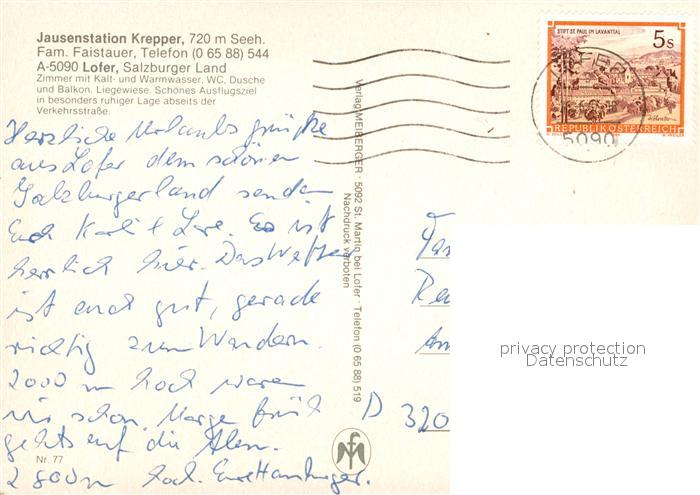 Jausenstation Krepper, 720 m Seeh.
Fam. Faistauer, Telefon (0 65 88) 544
A-5090 Lofer, Salzburger Land
Zimmer mit Kalt- und Warmwasser, WC, Dusche
und Balkon. Liegewiese. Schönes Ausflugsziel
in besonders ruhiger Lage abseits der
Verkehrsstraße.
Herzliche Urlaubsgrüße
aus Lofer dem schönen
Salzburgerland senden
Euch Karl & Lore. Es ist
herrlich hier. Das Wetter
ist auch gut, gerade
richtig zum Wandern.
2000 m hoch waren
wir schon. Morgen früh
gehts auf die Alm.
2800m hoch. Eure Hamburger.
Nr. 77
Verlag MEIBERGER · 5092 St. Martin bei Lofer · Telefon (0 65 88) 519
Nachdruck verboten
STIFT ST. PAUL IM LAVANTTAL
5 S
REPUBLIK ÖSTERREICH
5090
Fa
Re
Am
D 320
privacy protection
Datenschutz